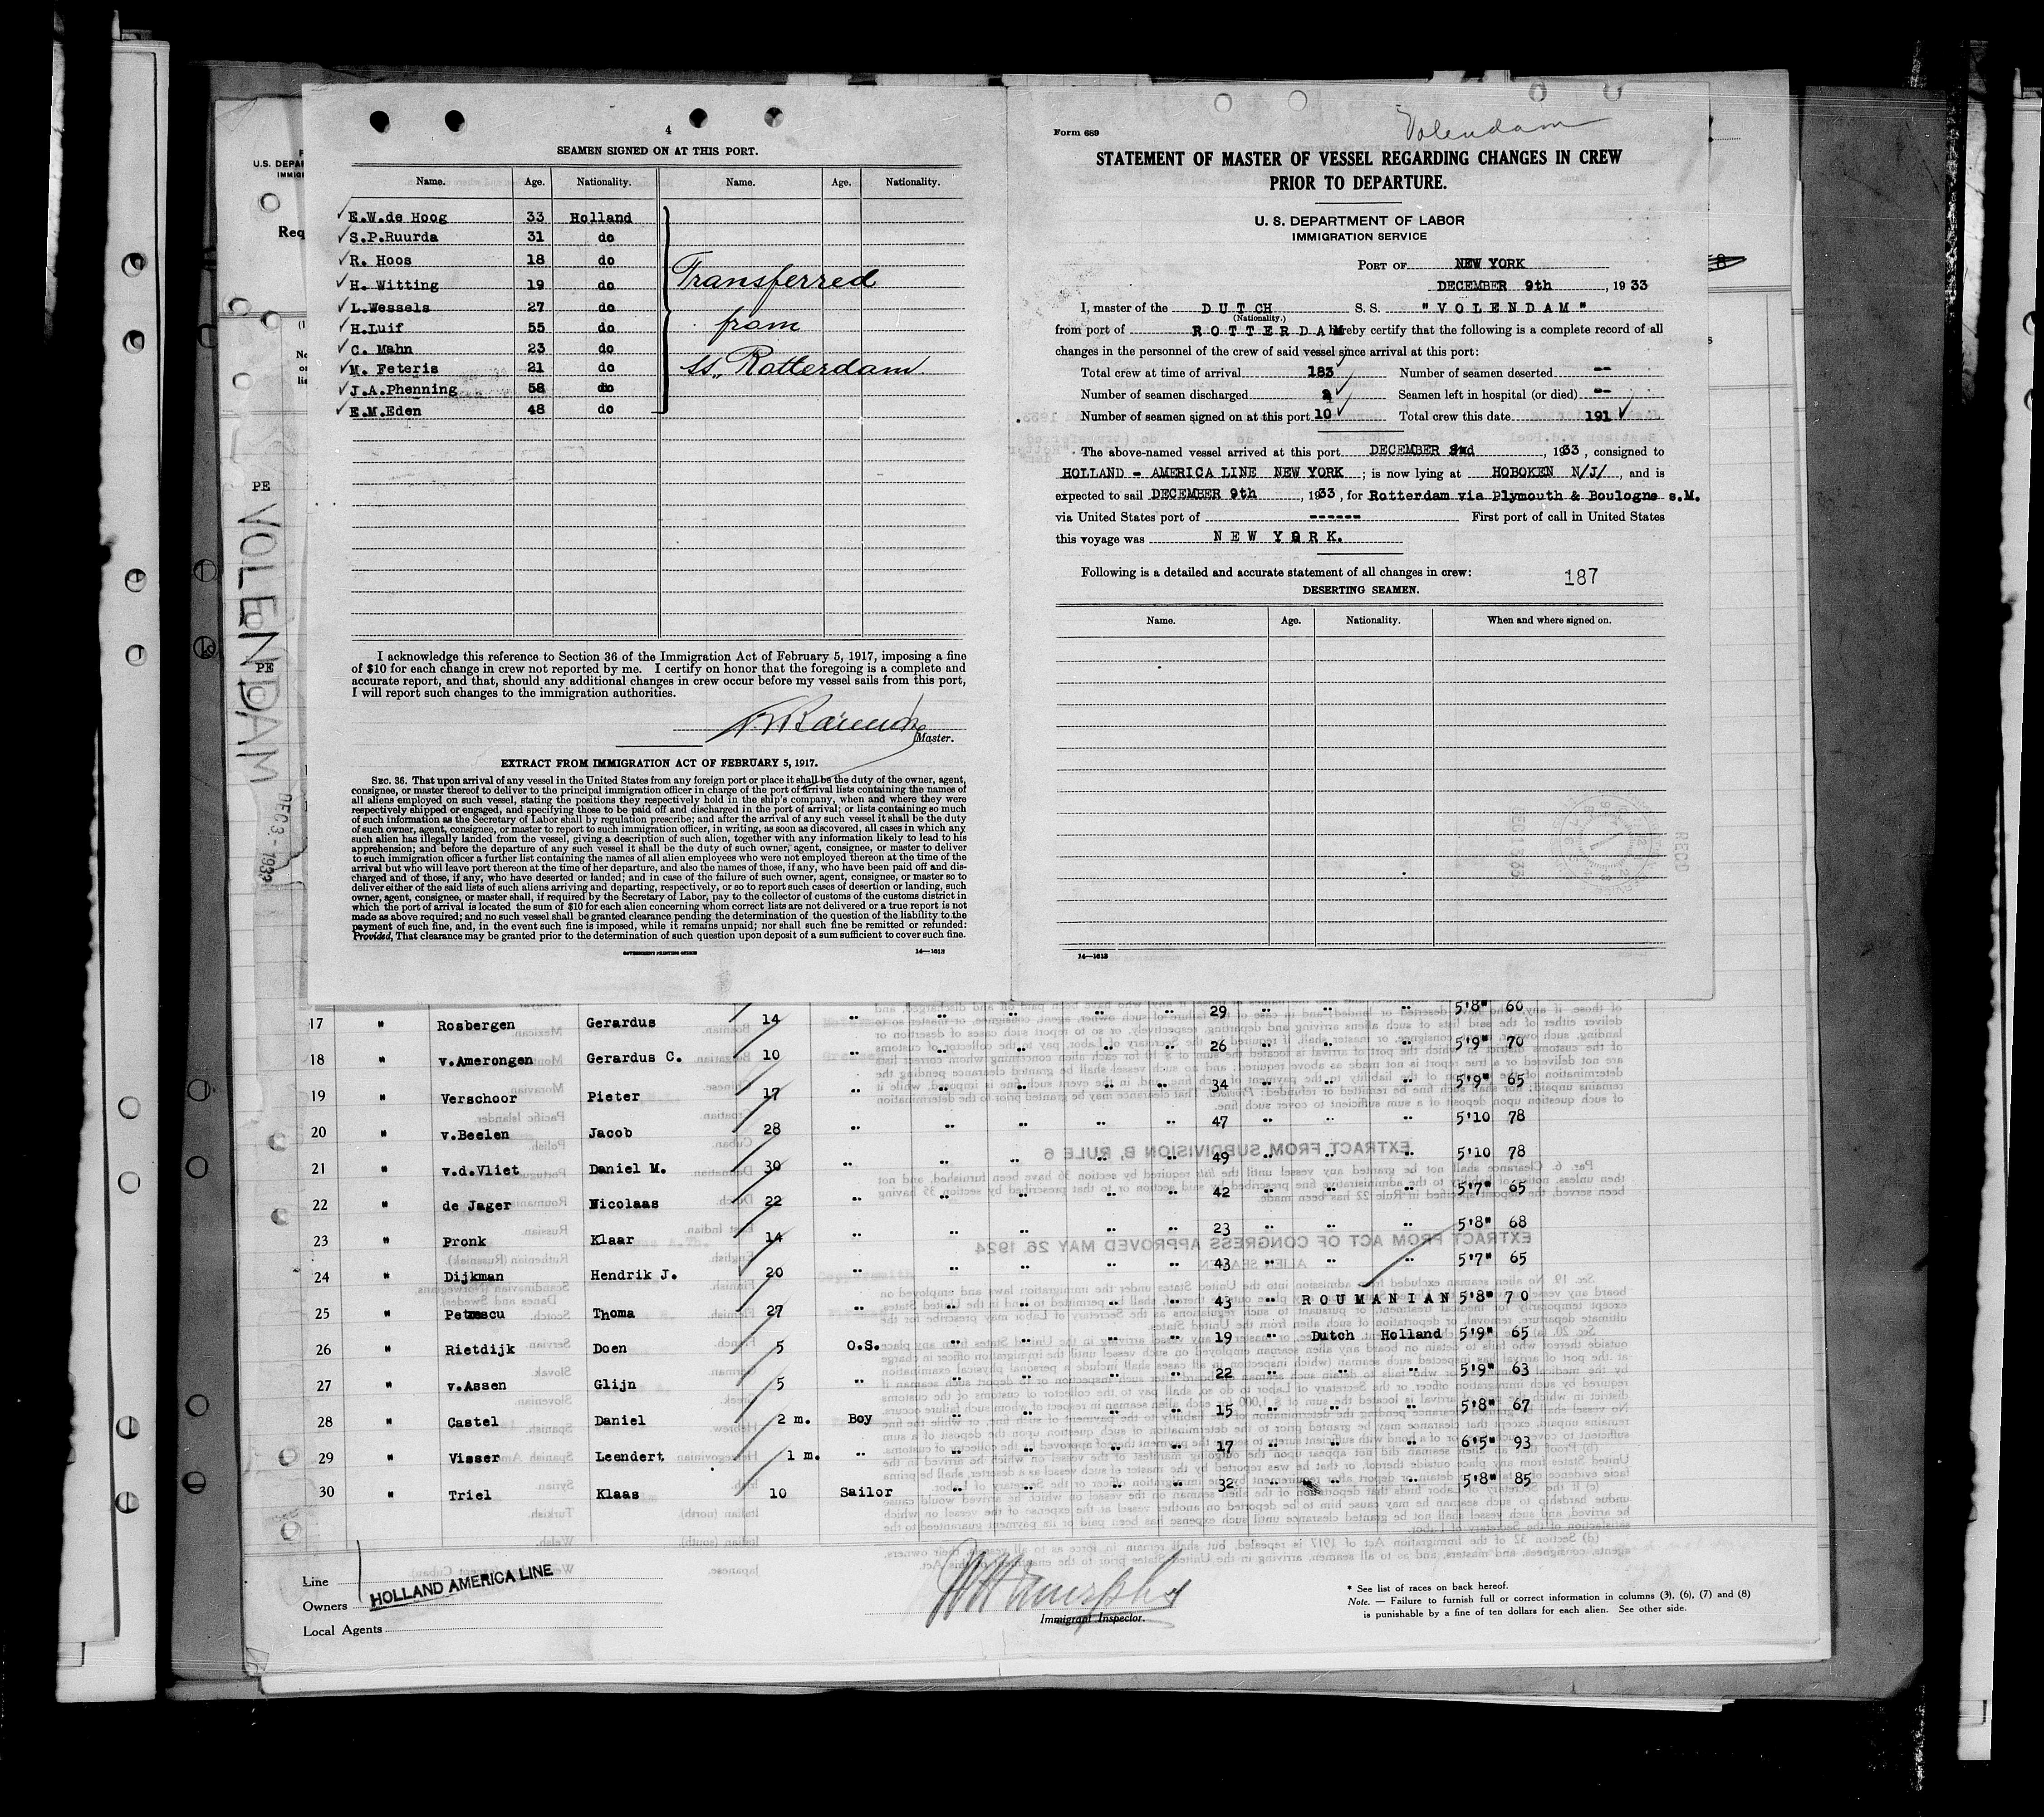 4
SEAMEN SIGNED ON AT THIS PORT.
Name. Age. Nationality. Name. Age. Nationality.
E.W.de Hoog 33 Holland
S.P.Ruurda 31 do
R. Hoos 18 do
H. Witting 19 do
L.Wessels 27 do
H.Luif 55 do
C. Mahn 23 do
M. Feteris 21 do
J.A.Phenning 58 do
E.M.Eden 48 do
Transferred
from
ss. Rotterdam
I acknowledge this reference to Section 36 of the Immigration Act of February 5, 1917, imposing a fine
of $10 for each change in crew not reported by me. I certify on honor that the foregoing is a complete and
accurate report, and that, should any additional changes in crew occur before my vessel sails from this port,
I will report such changes to the immigration authorities.
Master.
EXTRACT FROM IMMIGRATION ACT OF FEBRUARY 5, 1917.
SEC. 36. That upon arrival of any vessel in the United States from any foreign port or place it shall be the duty of the owner, agent,
consignee, or master thereof to deliver to the principal immigration officer in charge of the port of arrival lists containing the names of
all aliens employed on such vessel, stating the positions they respectively hold in the ship's company, when and where they were
respectively shipped or engaged, and specifying those to be paid off and discharged in the port of arrival; or lists containing so much
of such information as the Secretary of Labor shall by regulation prescribe; and after the arrival of any such vessel it shall be the duty
of such owner, agent, consignee, or master to report to such immigration officer, in writing, as soon as discovered, all cases in which any
such alien has illegally landed from the vessel, giving a description of such alien, together with any information likely to lead to his
apprehension; and before the departure of any such vessel it shall be the duty of such owner, agent, consignee, or master to deliver
to such immigration officer a further list containing the names of all alien employees who were not employed thereon at the time of the
arrival but who will leave port thereon at the time of her departure, and also the names of those, if any, who have been paid off and dis-
charged and of those, if any, who have deserted or landed; and in case of the failure of such owner, agent, consignee, or master so to
deliver either of the said lists of such aliens arriving and departing, respectively, or so to report such cases of desertion or landing, such
owner, agent, consignee, or master shall, if required by the Secretary of Labor, pay to the collector of customs of the customs district in
which the port of arrival is located the sum of $10 for each alien concerning whom correct lists are not delivered or a true report is not
made as above required; and no such vessel shall be granted clearance pending the determination of the question of the liability to the
payment of such fine, and, in the event such fine is imposed, while it remains unpaid; nor shall such fine be remitted or refunded:
Provided, That clearance may be granted prior to the determination of such question upon deposit of a sum sufficient to cover such fine.
GOVERNMENT PRINTING OFFICE 14—1613
Form 689
Volendam
STATEMENT OF MASTER OF VESSEL REGARDING CHANGES IN CREW
PRIOR TO DEPARTURE.
U. S. DEPARTMENT OF LABOR
IMMIGRATION SERVICE
PORT OF NEW YORK
DECEMBER 9th , 19 33
I, master of the DUTCH S. S. "VOLENDAM"
(Nationality.)
from port of ROTTERDAM hereby certify that the following is a complete record of all
changes in the personnel of the crew of said vessel since arrival at this port:
Total crew at time of arrival 183 Number of seamen deserted --
Number of seamen discharged 2 Seamen left in hospital (or died) --
Number of seamen signed on at this port 10 Total crew this date 191
The above-named vessel arrived at this port DECEMBER , 1933 , consigned to
HOLLAND - AMERICA LINE NEW YORK ; is now lying at HOBOKEN N/J/ , and is
expected to sail DECEMBER 9th , 1933 , for Rotterdam via Plymouth & Boulogne s.M.
via United States port of ------ First port of call in United States
this voyage was NEW YORK.
Following is a detailed and accurate statement of all changes in crew: 187
DESERTING SEAMEN.
Name. Age. Nationality. When and where signed on.
14—1613
U.S. DEPAR
IMMIG
Req
PE
VOLENDAM
PE
DEC 3 - 1933
" " " " " 29 " " " 5'8" 60
17 " Rosbergen Gerardus 14
18 " v.Amerongen Gerardus C. 10 " " " " " " 26 " " " 5'9" 70
19 " Verschoor Pieter 17 " " " " " " 34 " " " 5'9" 65
20 " v.Beelen Jacob 28 " " " " " 47 " " " 5'10 78
21 " v.d.Vliet Daniel M. 30 " " " " " 49 " " " 5'10 78
22 " de Jager Nicolaas 22 " " " " " 42 " " " 5'7" 65
23 " Pronk Klaar 14 " " " " " 23 " " " 5'8" 68
24 " Dijkman Hendrik J. 20 " " " " " 43 " " " 5'7" 65
25 " Petrescu Thoma 27 " " " " " 43 " ROUMANIAN 5'8" 70
26 " Rietdijk Doen 5 O.S. " " " " 19 " Dutch Holland 5'9" 65
27 " v.Assen Glijn 5 " " " " " 22 " " " 5'9" 63
28 " Castel Daniel 2 m. Boy " " " " 15 " " " 5'8" 67
29 " Visser Leendert 1 m. " " " " " 17 " " " 6'5" 93
30 " Triel Klaas 10 Sailor " " " " 32 " " " 5'8" 85
Line
Owners HOLLAND AMERICA LINE
Local Agents
Immigrant Inspector.
* See list of races on back hereof.
Note. — Failure to furnish full or correct information in columns (3), (6), (7) and (8)
is punishable by a fine of ten dollars for each alien. See other side.